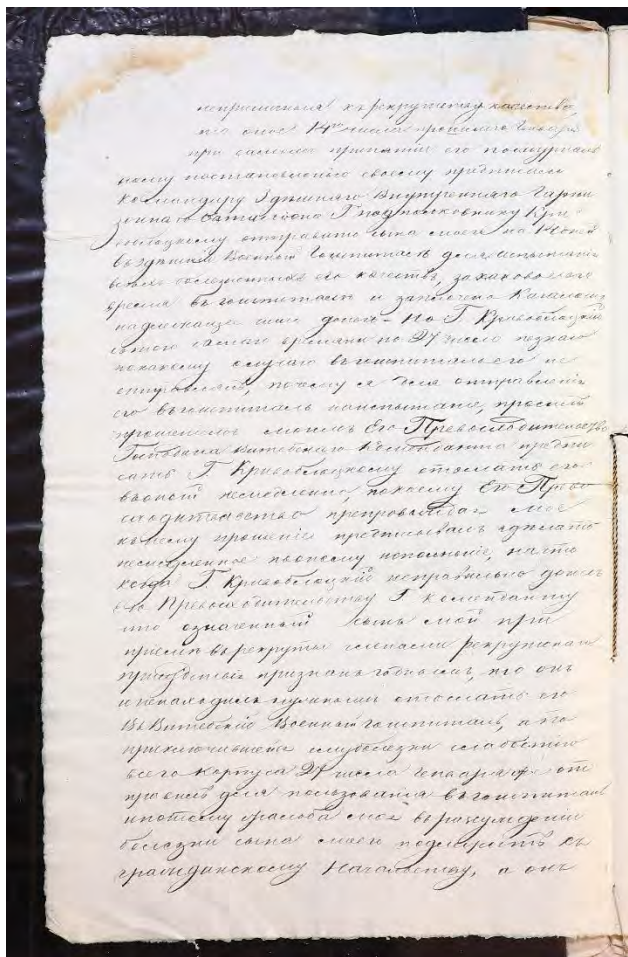 к рекрутству качества,
что оное 14го числа прошлого Генваря
при самомъ принятіи его по журналь
ному постановленію своему предписало
Командиру Здѣшняго Внутренняго Гарни
зоннаго баталіона Г подполковнику Кри
воблоцкому отправить сына моего на
въ здѣшній Военный Гошпиталь для испытанія
его качествъ, за каковое его
время въ гошпиталѣ и заплочено
надлежащіе деньги но Г Кривоблоцкій
съ того самаго времяни по 27 число незнаю
по какому случаю въ гошпиталь его не
отправлялъ, почему я для отправленія
его въ гошпиталь на испытаніе, просилъ
прошеніемъ моимъ Его Превосходительство
Господина Витебскаго Коменданта предпи
сать Г Кривоблоцкому отослать его
въ оный немедленно по коему Его Прево
сходительство препровождая мое
къ нему прошеніе предписывалъ сдѣлать
немедленное по оному исполненіе, на что
когда Г Кривоблоцкій неправильно донесъ
его Превосходительству Г коменданту
что означенный сынъ мой при
пріемѣ въ рекруты членами рекрутскаго
присутствія признанъ годнымъ, что онъ
и ненаходилъ нужнымъ отослать его
въ Витебскій Военный гошпиталь, а по
приключившейся ему болезни слабостію
всего Корпуса 27 числа Генваря отъ
правилъ для пользования въ гошпиталь
и потому просьба моя въ разсужденіи
болезни сына моего подлежитъ къ
гражданскому Начальству, а онъ